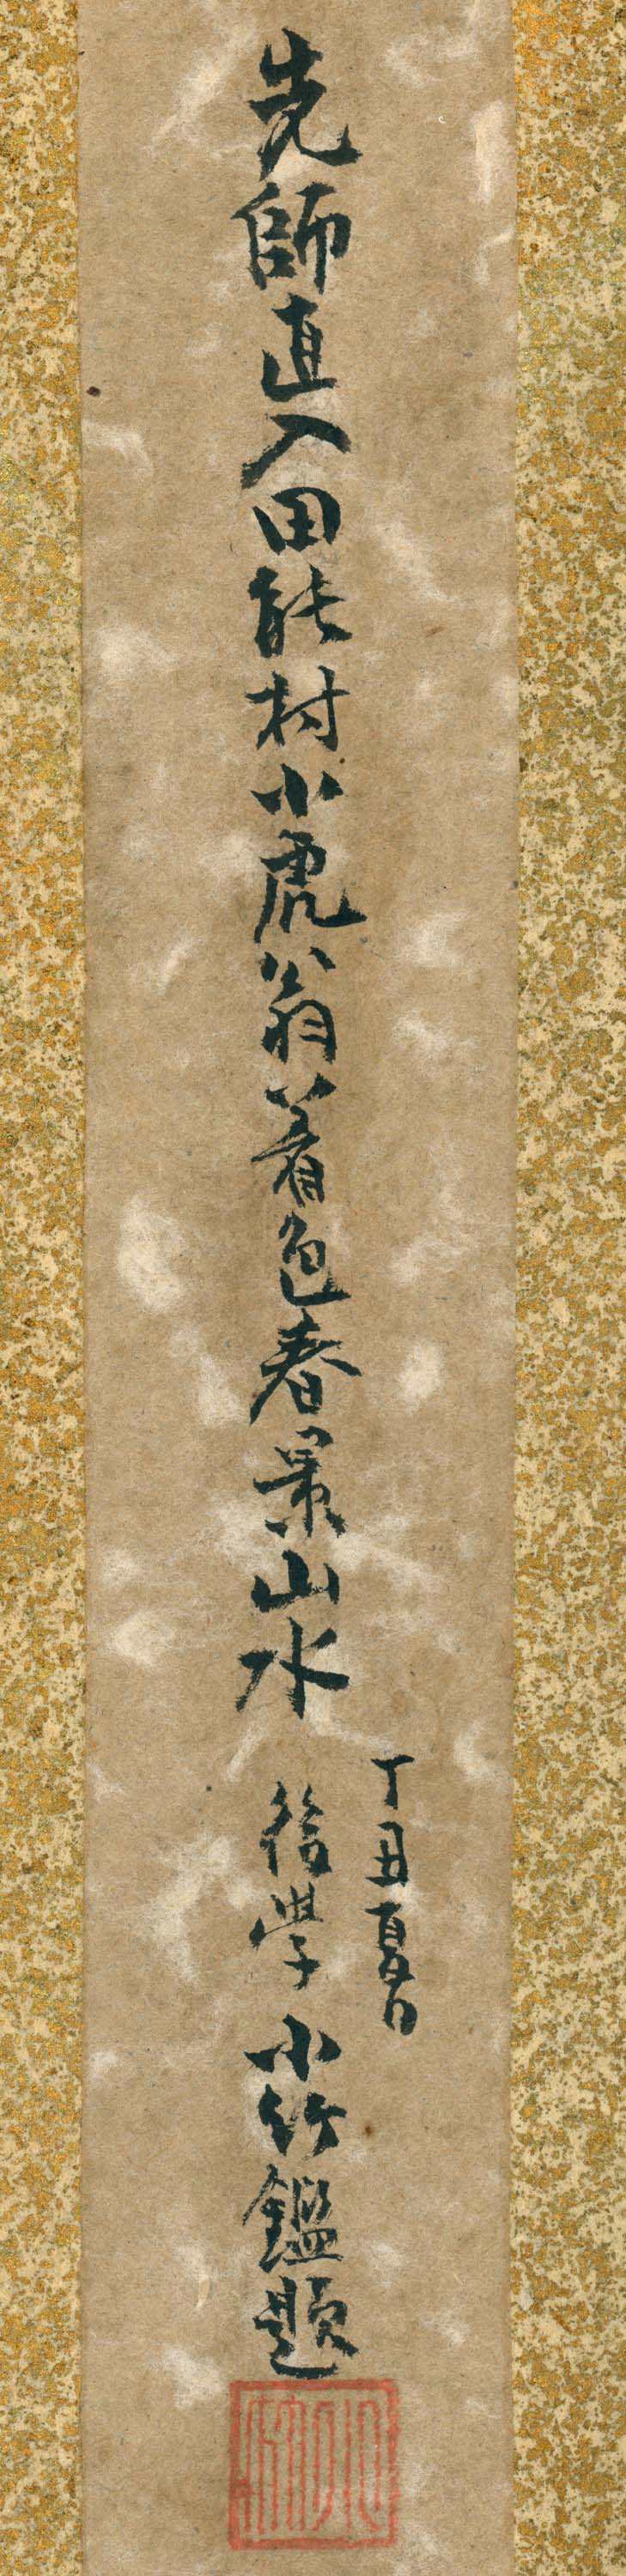 先師直入田能村小虎翁着色春景山水
丁丑夏日
後學 小竹鑑題